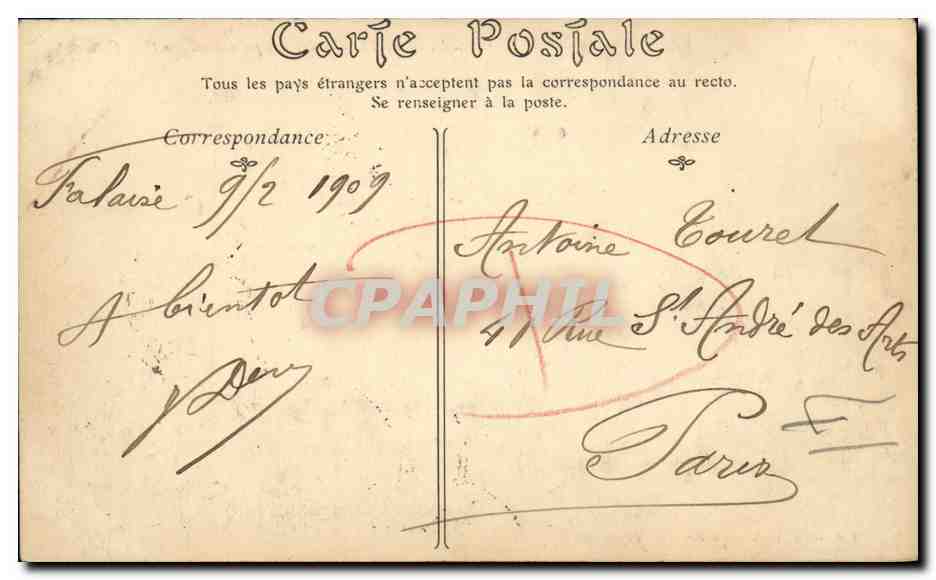 Carte Postale
Tous les pays étrangers n'acceptent pas la correspondance au recto.
Se renseigner à la poste.
Correspondance
Adresse
Falaise 9/2 1909
A bientot
Antoine Touret
41 Rue St André des Arts
Paris
CPAPHIL